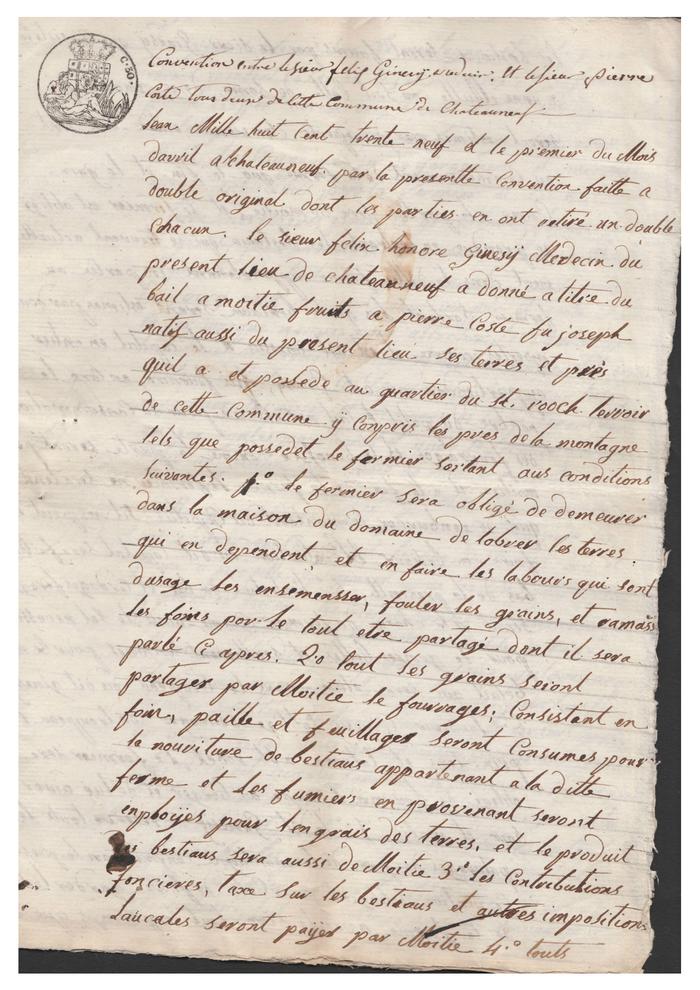 C. 50.
Convention entre le sieur felix Ginesÿ, et le sieur pierre
Coste tous deux de cette Commune de Chateauneuf
lean Mille huit Cent trente neuf et le premier du Mois
davril a Chateauneuf. par la presentte Convention faitte a
double original dont les parties en ont retiré un double
chacun. le sieur felix honore Ginesÿ Medecin du
present lieu de chateauneuf a donné a titre du
bail a moitie fruits a pierre Coste fu joseph
natif aussi du present lieu ses terres et près
quil a et possede au quartier du st. rooch terroir
de cette Commune ÿ conpris les pres de la montagne
tels que possedet le fermier sortant aus conditions
suivantes. 1º le fermier sera obligé de demeurer
dans la maison du domaine de labrer les terres
qui en dependent et en faire les labours qui sont
dusage les ensemensser, fouler les grains, et ramass
les foins por le tout etre partagé dont il sera
parlé Cy apres. 2º tout les grains seront
partager par Moitie le fourrages; Consistant en
foin, paille et feuillages seront Consumes pour
la nouriture de bestiaus appartenant a la ditte
ferme et les fumiers en provenant seront
enploÿés pour lengrais des terres, et le produit
des bestiaus sera aussi de Moitie 3º les Contributions
foncieres, taxe sur les bestiaus et autres impositions
Laucales seront payer par Moitie 4º touts